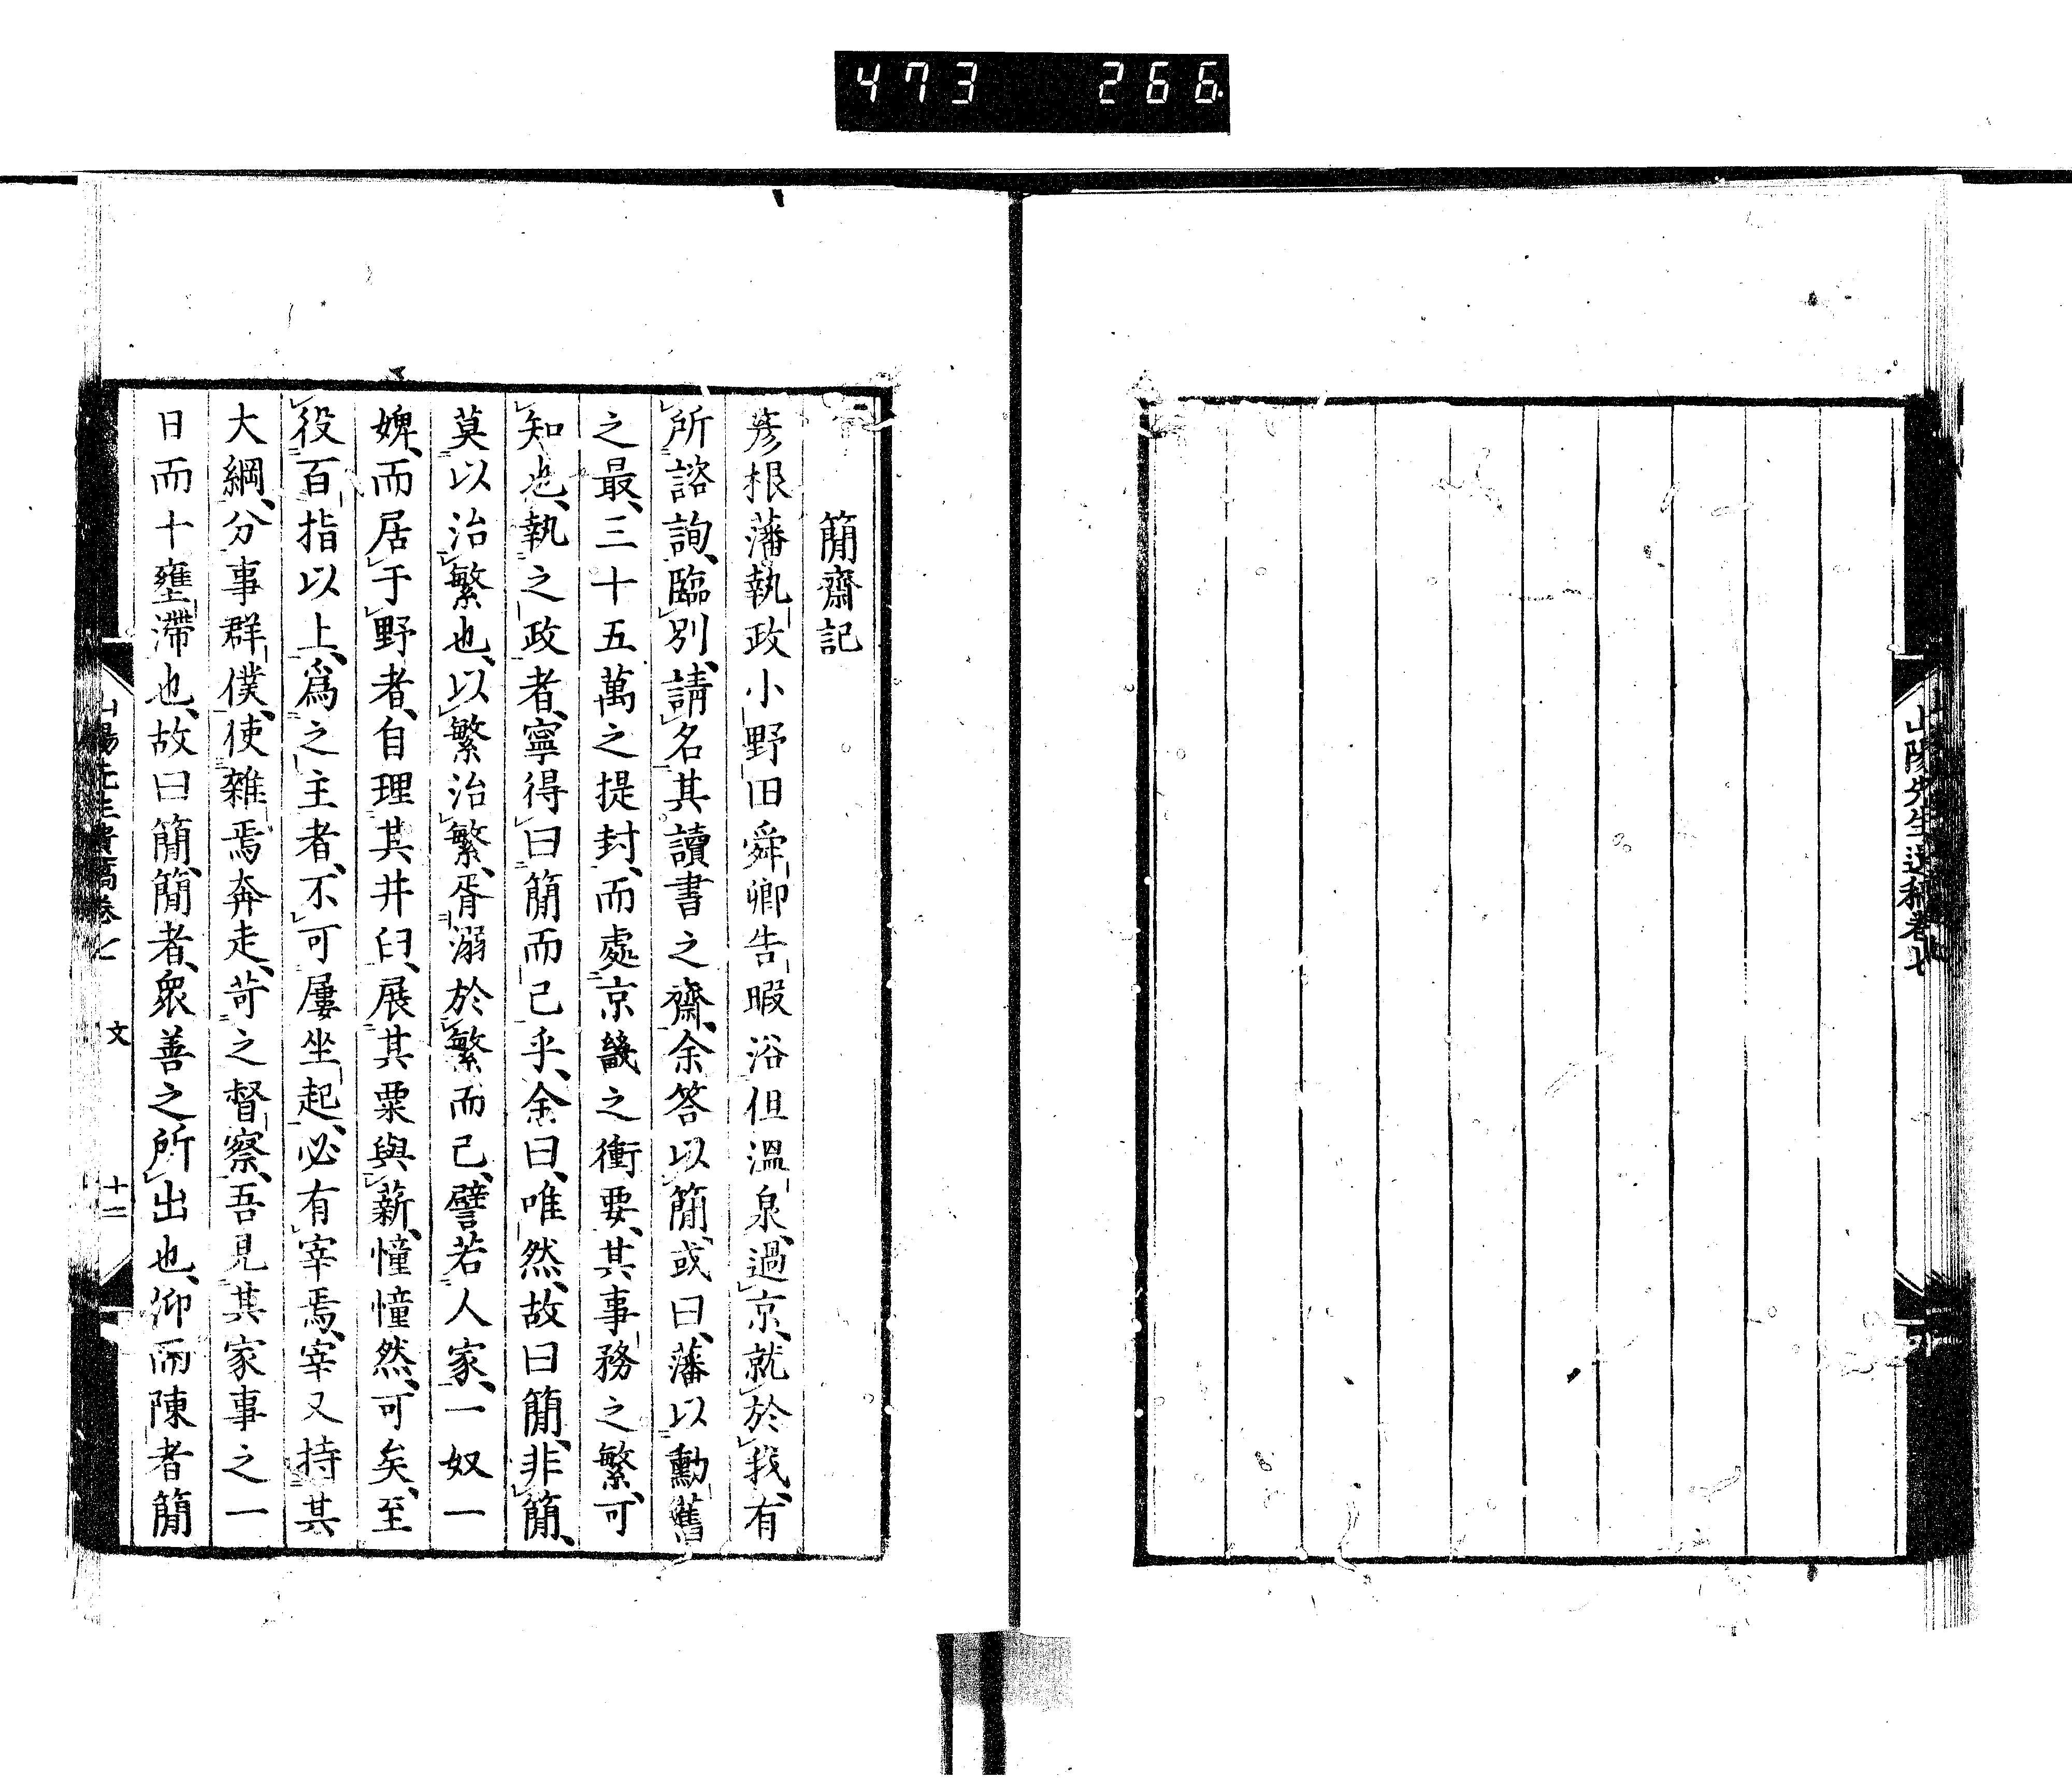 473 266
山陽先生遺稿卷七
簡齋記
彥根藩執政小野田舜卿告暇浴但溫泉、過京、就於我、有
所諮詢、臨別、請名其讀書之齋、余答以簡、或曰、藩以勳舊
之最、三十五萬之提封、而處京畿之衝要、其事務之繁、可
知也、執之政者、寧得曰簡而已乎、余曰、唯然、故曰簡、非簡、
莫以治繁也、以繁治繁、胥溺於繁而已、譬若人家、一奴一
婢、而居于野者、自理其井臼、展其粟與薪、憧憧然、可矣、至
役百指以上、爲之主者、不可屢坐起、必有宰焉、宰又持其
大綱、分事群僕、使雜焉奔走、苛之督察、吾見其家事之一
日而十壅滯也、故曰簡、簡者、衆善之所出也、仰而陳者簡
山陽先生遺稿卷七 文 十二